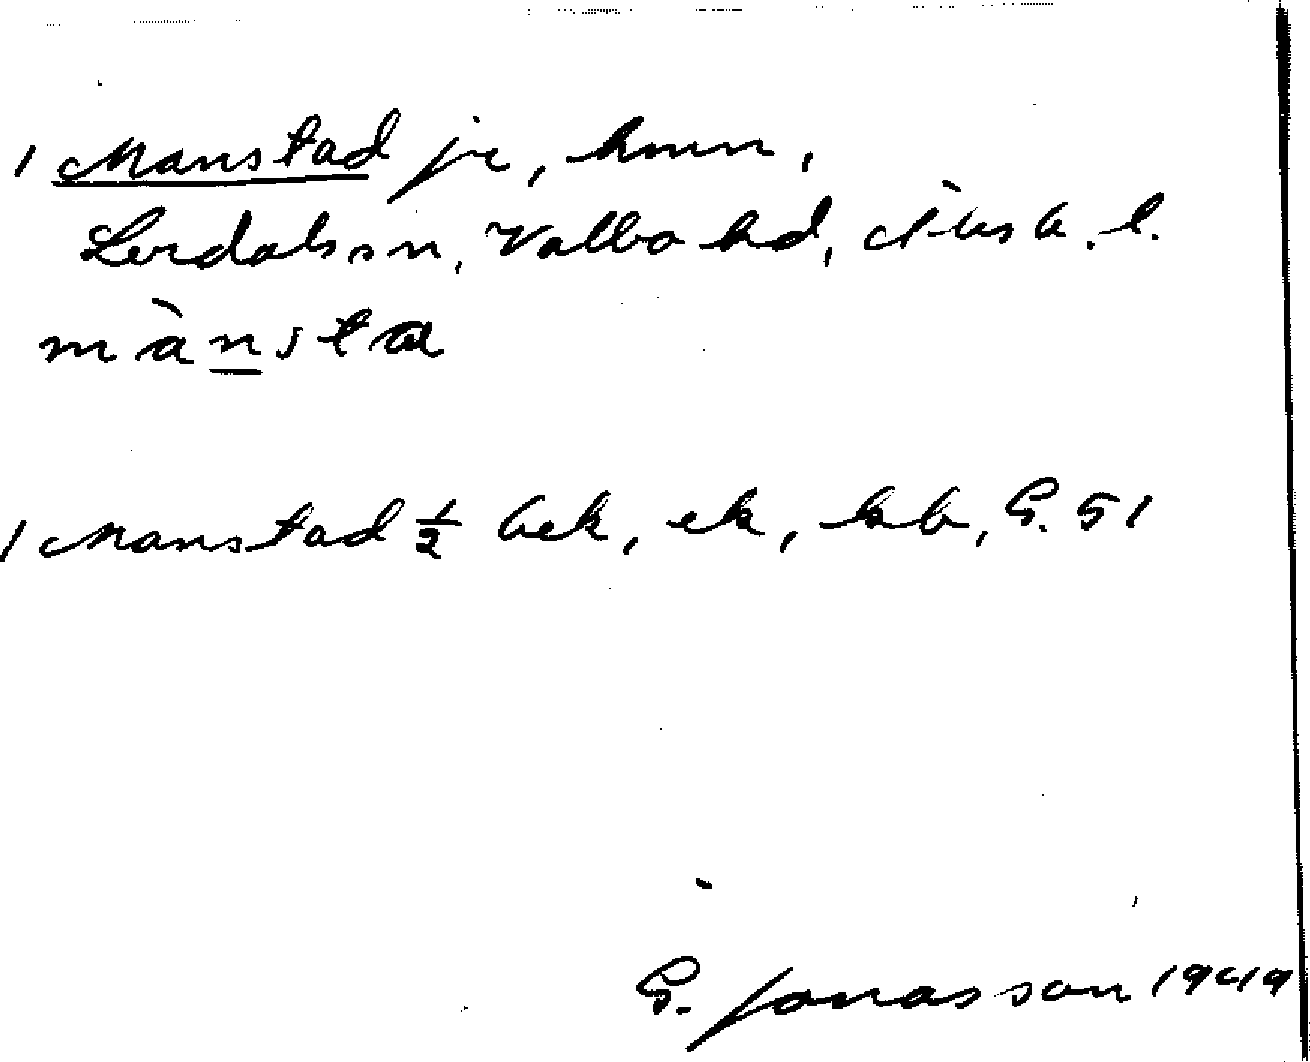 1 Manstad je, hmn,
Lerdals sn, Valbo hd, Älvsb. l.
mànsta
1 Manstad ½ bek, ek, kb, G. 51
G. Jonasson 1949